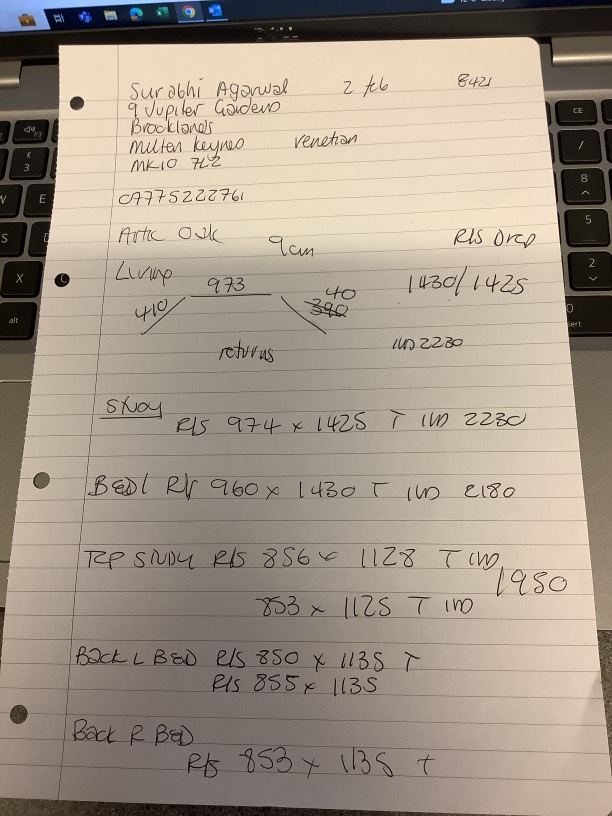 Surabhi Agarwal 2 feb 8421
9 Jupiter Gardens
Brooklands
Milten Keynes venetian
MK10 7LZ
07775222761
Artic Oak 9cm R/S Drop
Living 973 1430/1425
410 40 390
returns IND 2230
Study
R/S 974 x 1425 T IND 2230
BED1 R/S 960 x 1430 T IND 2180
TOP STUDY R/S 856 x 1128 T IND
1950
853 x 1125 T IND
Back L BED R/S 850 x 1135 T
R/S 855 x 1135
Back R BED
R/S 853 x 1135 T